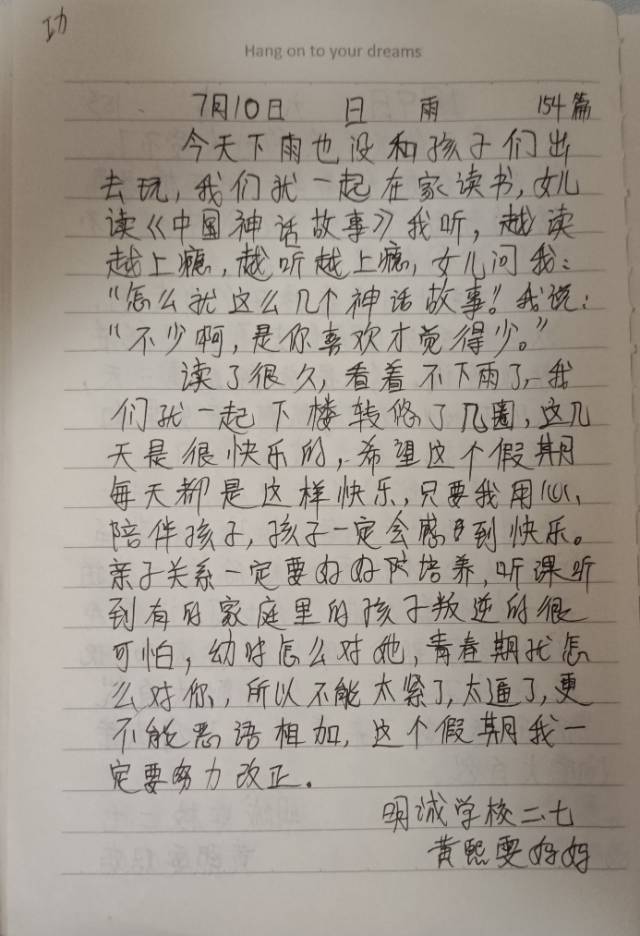 功
Hang on to your dreams
7月10日 日 雨 154篇
今天下雨也没和孩子们出
去玩,我们就一起在家读书,女儿
读《中国神话故事》我听,越读
越上瘾,越听越上瘾,女儿问我:
“怎么就这么几个神话故事!我说:
“不少啊,是你喜欢才觉得少。”
读了很久,看着不下雨了,我
们就一起下楼转悠了几圈,这几
天是很快乐的,希望这个假期
每天都是这样快乐,只要我用心,
陪伴孩子,孩子一定会感到快乐。
亲子关系一定要好好陪培养,听课听
到有的家庭里的孩子叛逆的很
可怕,幼时怎么对她,青春期就怎
么对你,所以不能太紧了,太逼了,更
不能恶语相加,这个假期我一
定要努力改正.
明诚学校二七
黄熙雯妈妈